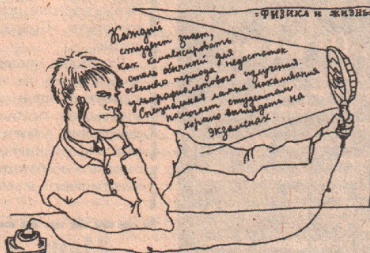 ·ФИЗИКА И ЖИЗНЬ·
Каждый
студент знает,
как компенсировать
столь обычный для
осеннего периода недостаток
ультрафиолетового излучения.
Специальная лампа
помогает студентам
хорошо выглядеть на
экзаменах.